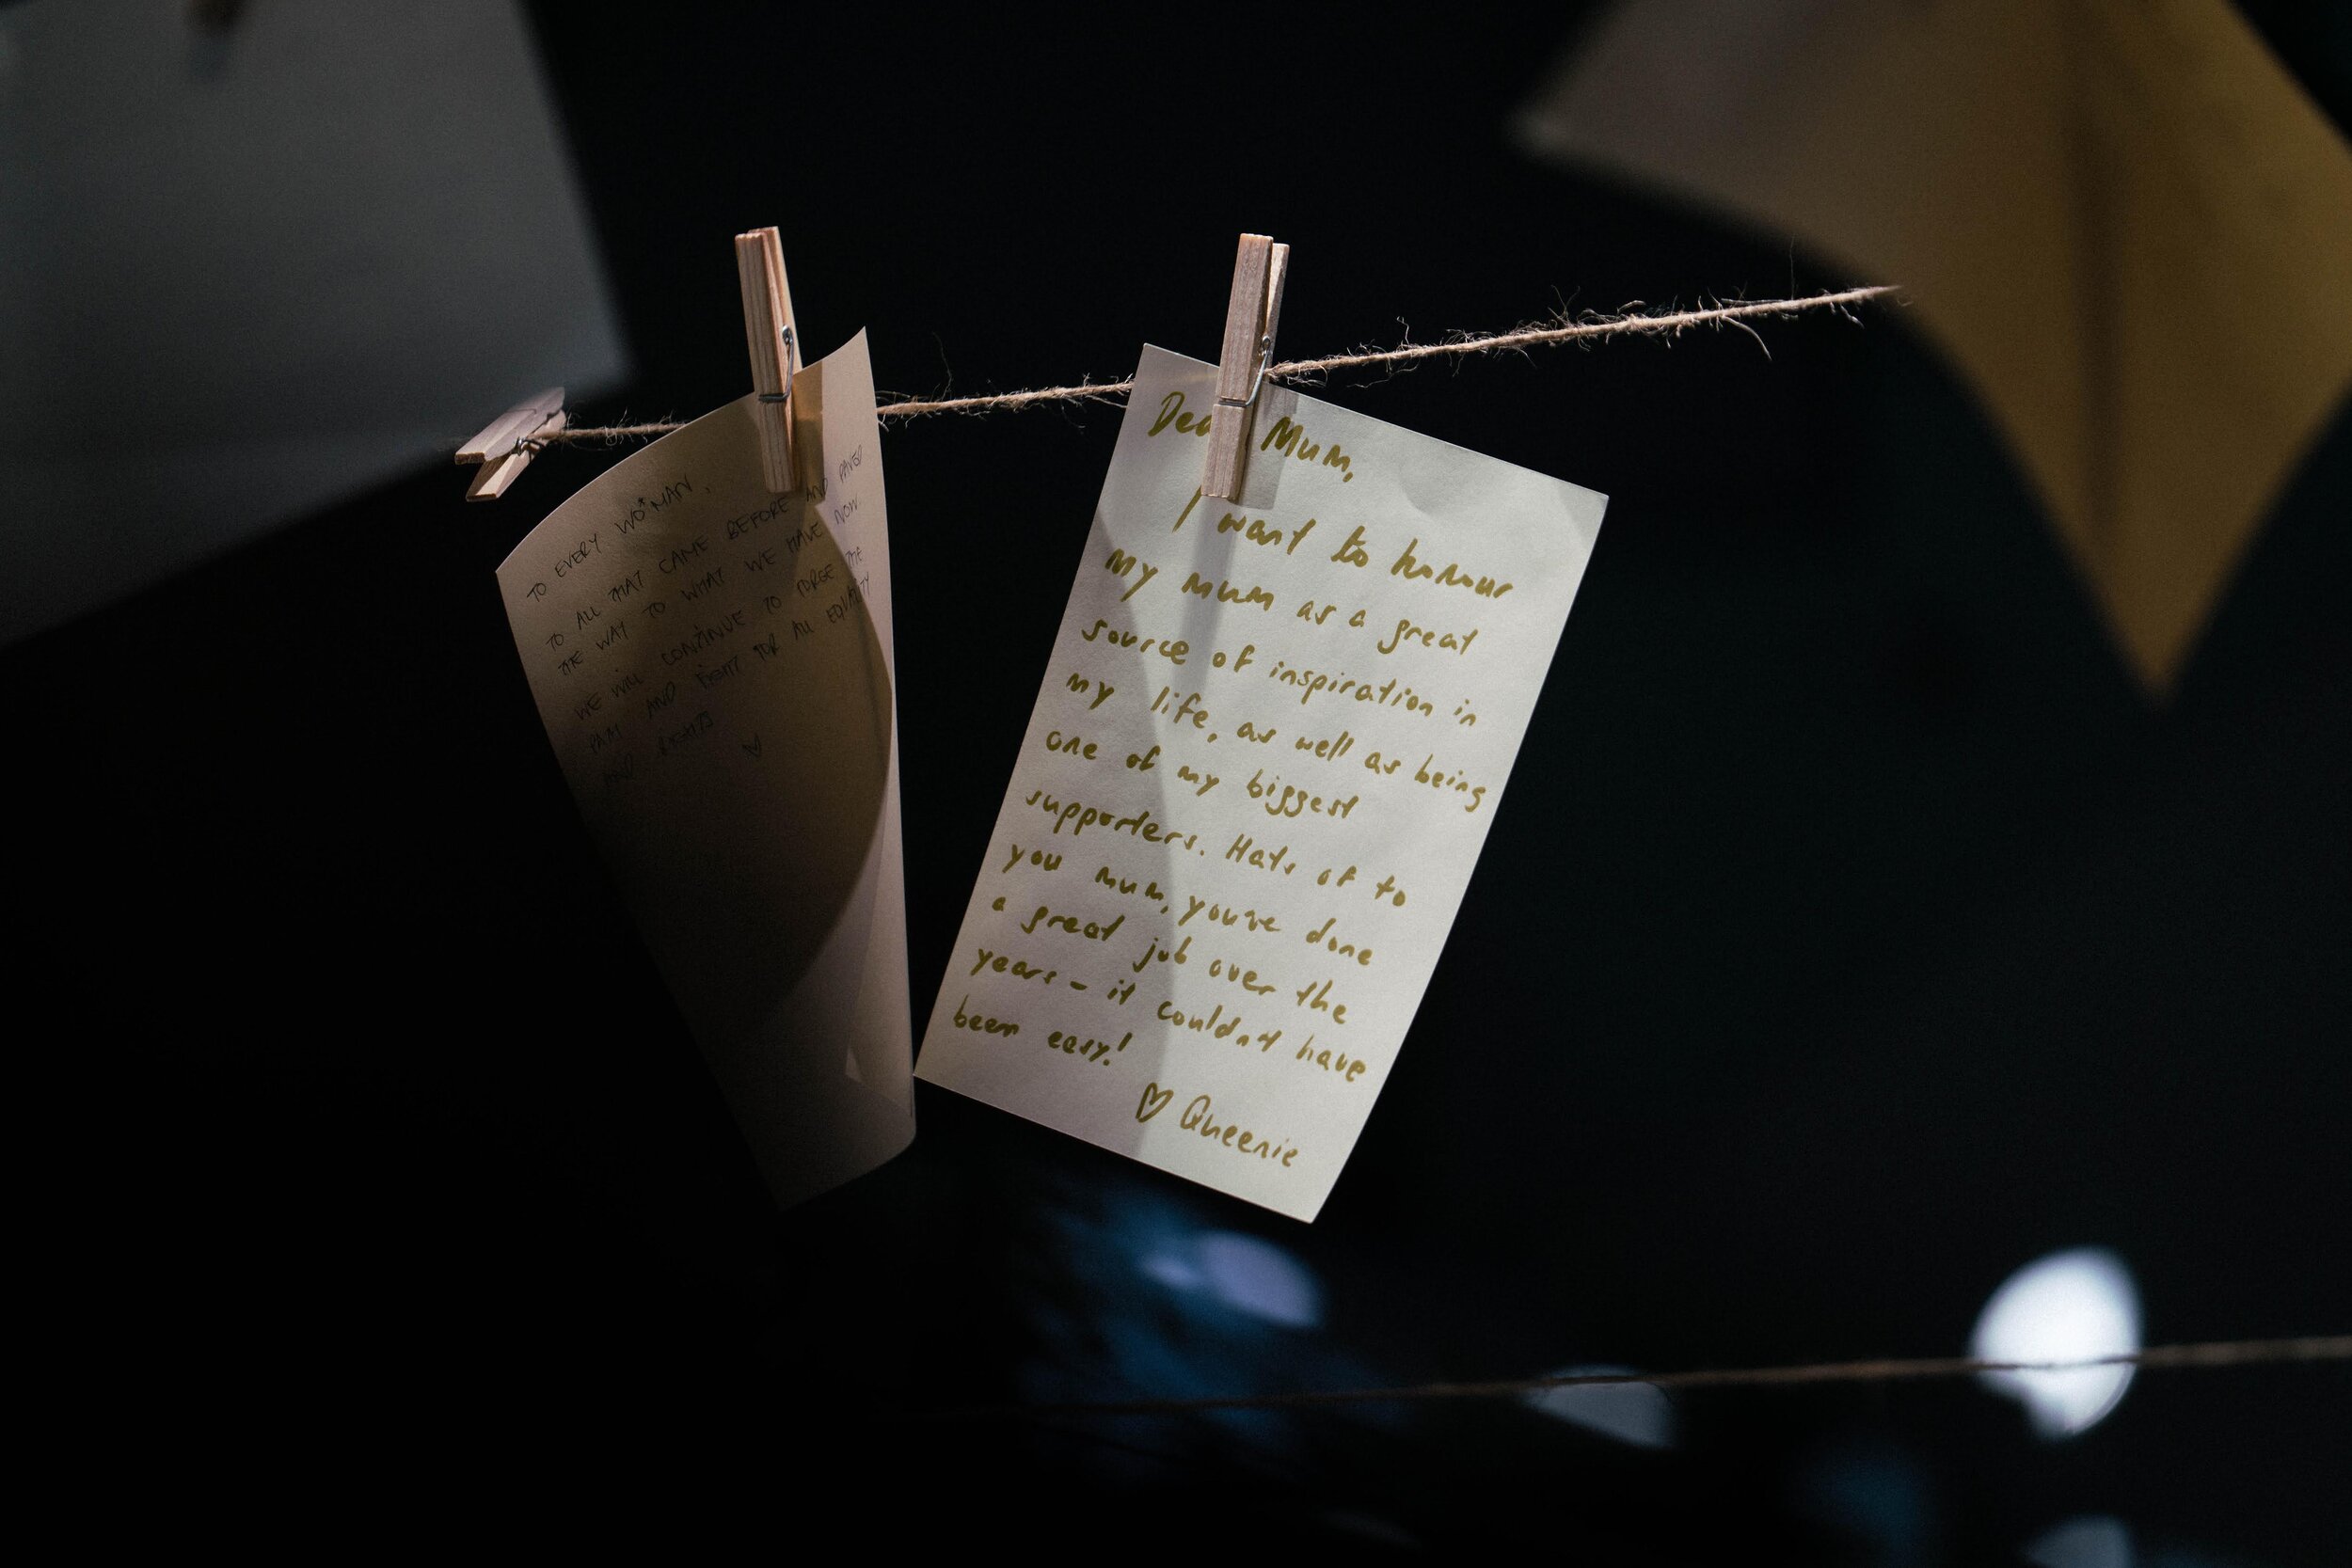 TO EVERY WO*MAN,
TO ALL THAT CAME BEFORE AND PAVED
THE WAY TO WHAT WE HAVE NOW.
WE WILL CONTINUE TO FORGE THE
PATH AND FIGHT FOR ALL EQUALITY
AND RIGHTS
Dear Mum,
I want to honour
my mum as a great
source of inspiration in
my life, as well as being
one of my biggest
supporters. Hats of to
you mum, you've done
a great job over the
years - it couldn't have
been easy!
♡ Queenie